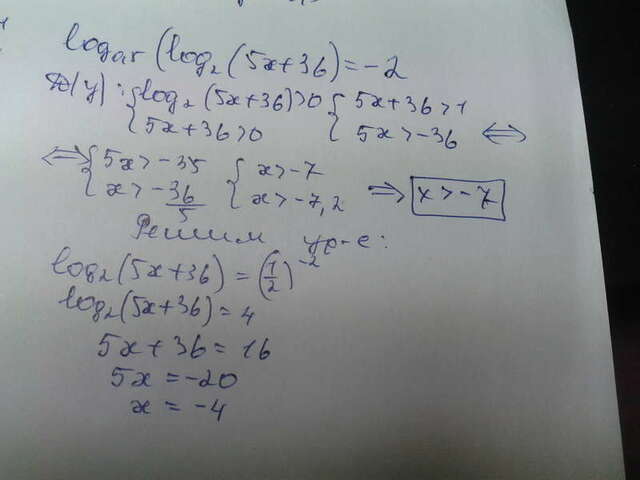 log₀,₅ (log₂(5x+36) = -2
D(y): { log₂(5x+36)>0 { 5x+36>1
{ 5x+36>0 { 5x>-36 ⇔
⇔ { 5x>-35 { x>-7
{ x>-36/5 { x>-7,2 ⇒ x>-7
Решим ур-е:
log₂(5x+36) = (1/2)⁻²
log₂(5x+36) = 4
5x+36 = 16
5x = -20
x = -4